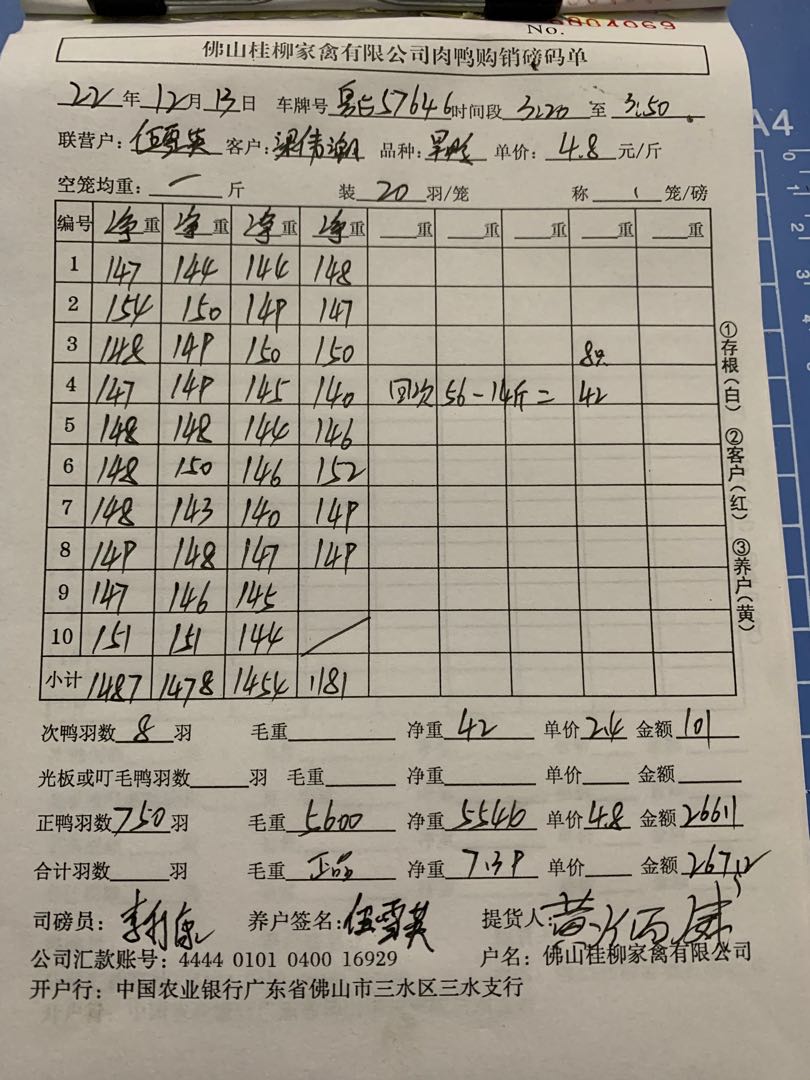 No. 0004069
佛山桂柳家禽有限公司肉鸭购销磅码单
22年12月13日 车牌号 粤E57646 时间段 3:20 至 3:50
联营户: 伍雪英 客户: 梁伟潮 品种: 单价: 4.8 元/斤
空笼均重: 一 斤 装 20 羽/笼 称 1 笼/磅
编号 净重 净重 净重 净重 重 重 重 重 重
1 147 144 144 148
2 154 150 149 147
3 148 149 150 150 8只
4 147 149 145 140 回次 56-14斤= 42
5 148 148 144 146
6 148 150 146 152
7 148 143 140 149
8 149 148 147 149
9 147 146 145
10 151 151 144
小计 1487 1478 1454 1181
次鸭羽数 8 羽 毛重 净重 42 单价 2.4 金额 101
光板或叮毛鸭羽数 羽 毛重 净重 单价 金额
正鸭羽数 750 羽 毛重 5600 净重 5546 单价 4.8 金额 26611
合计羽数 羽 毛重 正品 净重 7.39 单价 金额 26712
司磅员: 养户签名: 伍雪英 提货人:
公司汇款账号: 4444 0101 0400 16929 户名: 佛山桂柳家禽有限公司
开户行: 中国农业银行广东省佛山市三水区三水支行
①存根(白) ②客户(红) ③养户(黄)
A4
0
1
2
3
4